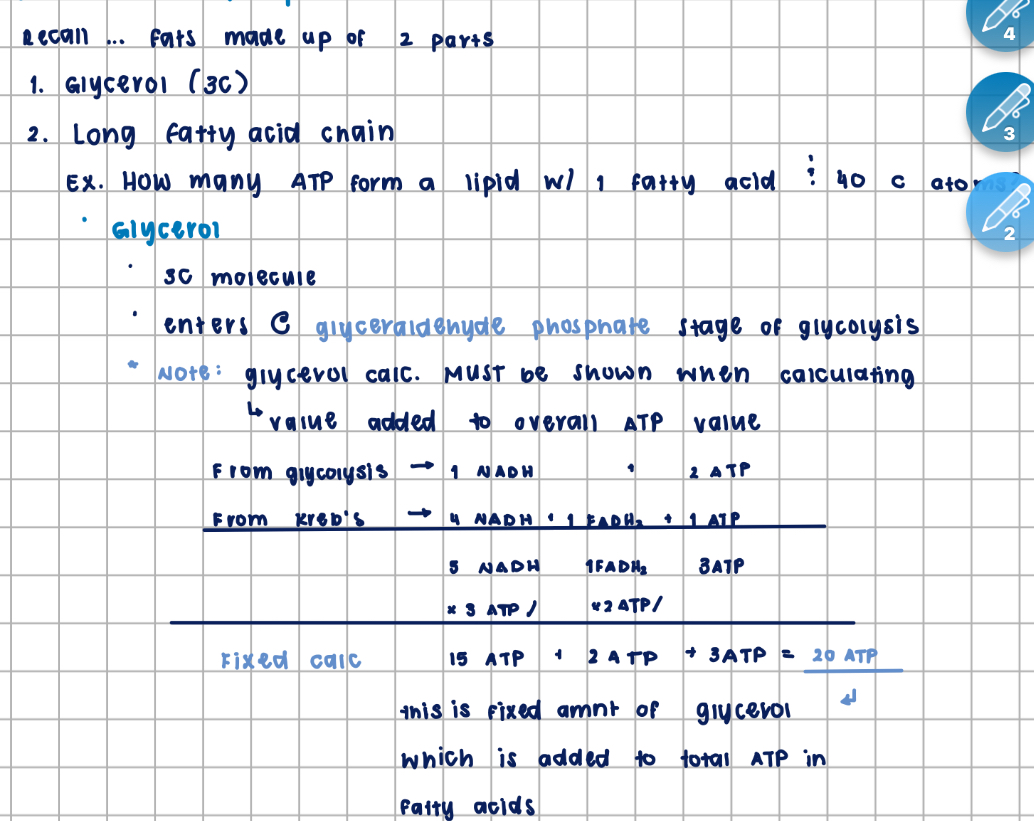 Recall ... fats made up of 2 parts
1. Glycerol (3C)
2. Long fatty acid chain
Ex. How many ATP form a lipid w/ 1 fatty acid + 40 C atoms?
Glycerol
3C molecule
enters @ glyceraldehyde phosphate stage of glycolysis
* Note: glycerol calc. MUST be shown when calculating
↳ value added to overall ATP value
From glycolysis → 1 NADH + 2 ATP
From Kreb's → 4 NADH + 1 FADH₂ + 1 ATP
5 NADH 1FADH₂ 3ATP
× 3 ATP/ ×2 ATP/
Fixed calc 15 ATP + 2 ATP + 3ATP = 20 ATP
this is fixed amnt of glycerol ↲
which is added to total ATP in
fatty acids
4
3
2